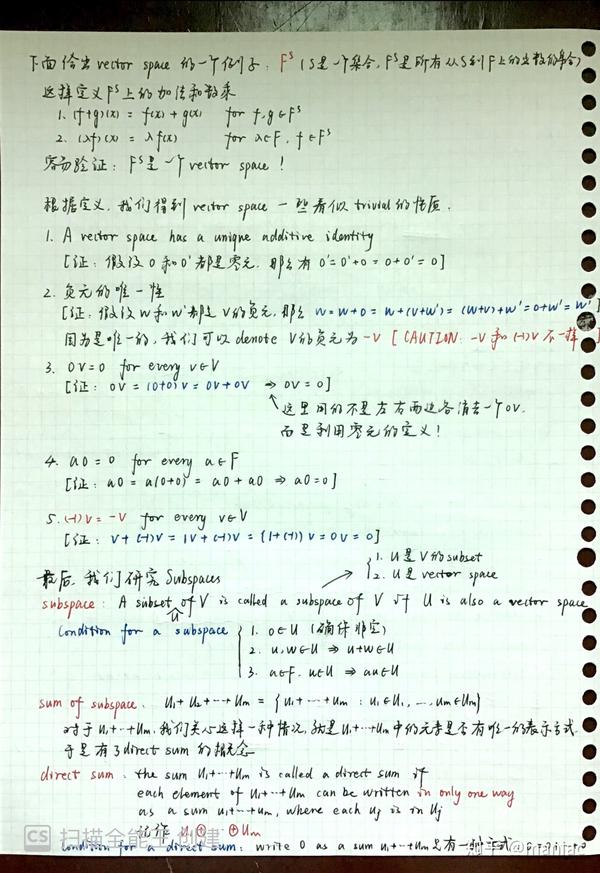 下面给出 vector space 的一个例子: F^S (S是一个集合, F^S是所有从S到F上的函数的集合)
这样定义F^S上的加法和数乘
1. (f+g)(x) = f(x) + g(x) for f,g∈F^S
2. (λf)(x) = λf(x) for λ∈F, f∈F^S
容易验证: F^S是一个 vector space !
根据定义, 我们得到 vector space 一些看似 trivial 的性质.
1. A vector space has a unique additive identity
[证: 假设 0 和 0' 都是零元, 那么有 0'=0'+0=0+0'=0]
2. 负元的唯一性
[证: 假设 w 和 w' 都是 V 的负元, 那么 w=w+0=w+(v+w')=(w+v)+w'=0+w'=w']
因为是唯一的, 我们可以 denote V的负元为 -V [CAUTION: -V 和 (-1)V 不一样]
3. 0V=0 for every v∈V
[证: 0V = (0+0)V = 0V+0V ⇒ 0V=0]
这里用的不是左右两边各消去一个0V.
而是利用零元的定义!
4. a0=0 for every a∈F
[证: a0 = a(0+0) = a0+a0 ⇒ a0=0]
5. (-1)V=-V for every v∈V
[证: V+(-1)V = 1V+(-1)V = (1+(-1))V=0V=0]
最后, 我们研究 Subspaces
1. U是V的subset
2. U是 vector space
subspace: A subset U of V is called a subspace of V if U is also a vector space
Condition for a subspace
1. 0∈U (确保非空)
2. u,w∈U ⇒ u+w∈U
3. a∈F, u∈U ⇒ au∈U
sum of subspace. U1+U2+···+Um = {u1+···+um : u1∈U1, ..., um∈Um}
对于U1+···+Um, 我们关心这样一种情况, 就是U1+···+Um中的元素是否有唯一的表示方式.
于是有了direct sum 的概念
direct sum: the sum U1+···+Um is called a direct sum if
each element of U1+···+Um can be written in only one way
as a sum u1+···+um, where each uj is in Uj
记作 U1⊕ ⊕Um
Condition for a direct sum: write 0 as a sum u1+···+um 只有一种方式
CS 扫描全能王 创建
知乎 @maniac